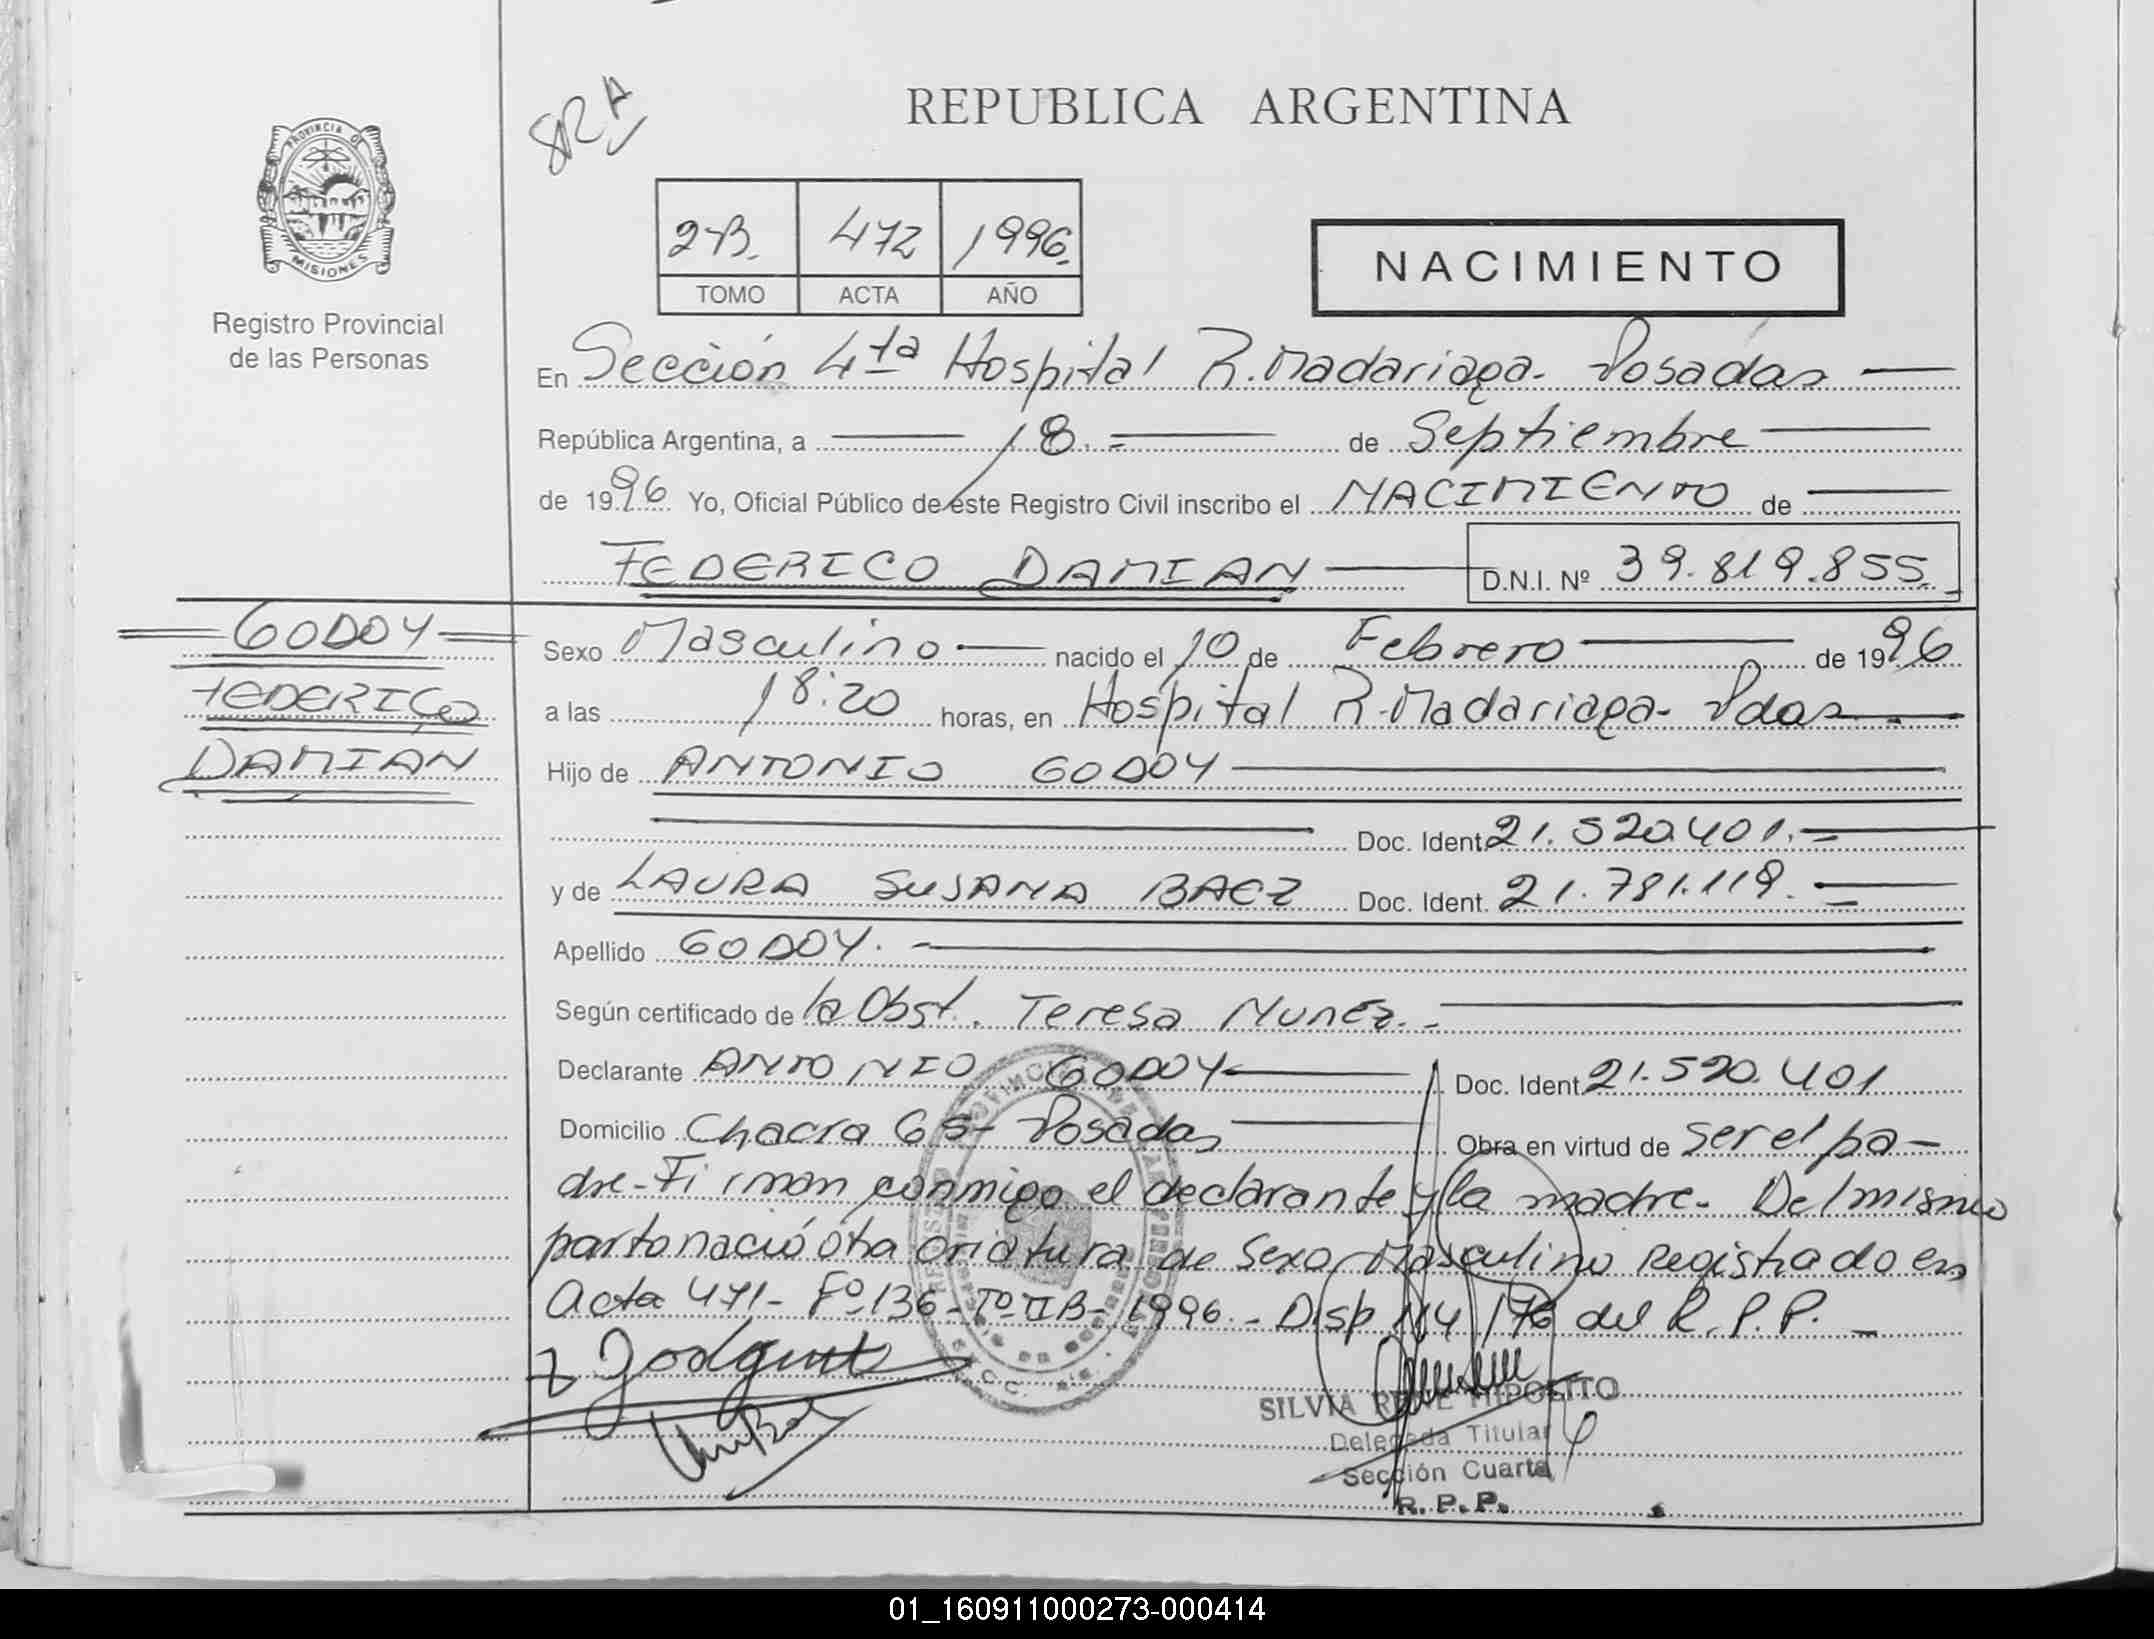 SRA
REPUBLICA ARGENTINA
PROVINCIA DE
MISIONES
Registro Provincial
de las Personas
2-B. 472 1996.
TOMO ACTA AÑO
NACIMIENTO
En Sección 4ta Hospital R. Madariaga - Posadas
República Argentina, a 18.= de Septiembre
de 1996 Yo, Oficial Público de este Registro Civil inscribo el NACIMIENTO de
FEDERICO DAMIAN D.N.I. Nº 39.819.855.
GODOY
FEDERICO
DAMIAN
Sexo Masculino nacido el 10 de Febrero de 1996
a las 18:20 horas, en Hospital R. Madariaga - Pdas
Hijo de ANTONIO GODOY
Doc. Ident. 21.520.401.=
y de LAURA SUSANA BAEZ Doc. Ident. 21.781.119.=
Apellido GODOY. -
Según certificado de la Obst. Teresa Nunez. -
Declarante ANTONIO GODOY Doc. Ident. 21.520.401
Domicilio Chacra 65 - Posadas Obra en virtud de ser el pa-
dre - Firman conmigo el declarante y la madre. Del mismo
parto nació otra criatura de Sexo Masculino registrado en
Acta 471 - Fº 136 - Tº II B - 1996. - Disp 114/76 del R.P.P. -
SILVIA RENE HIPOLITO
Delegada Titular
Sección Cuarta
R. P. P.
01_160911000273-000414